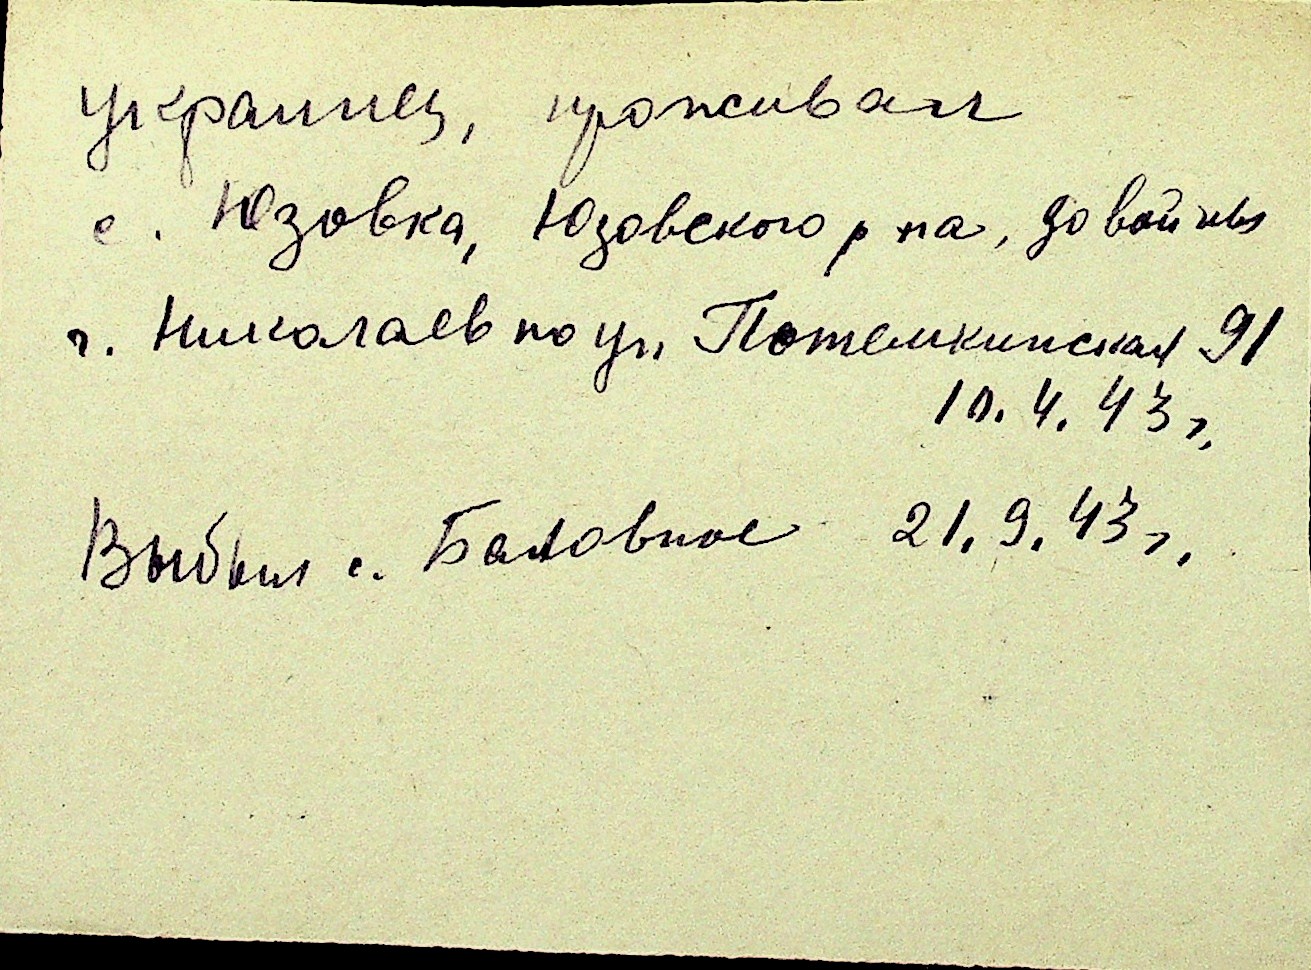 украинец, проживал
с. Юзовка, Юзовского р на, до войны
г. Николаев по ул. Потемкинская 91
10.4.43 г.
Выбыл с. Баловное 21.9.43 г.